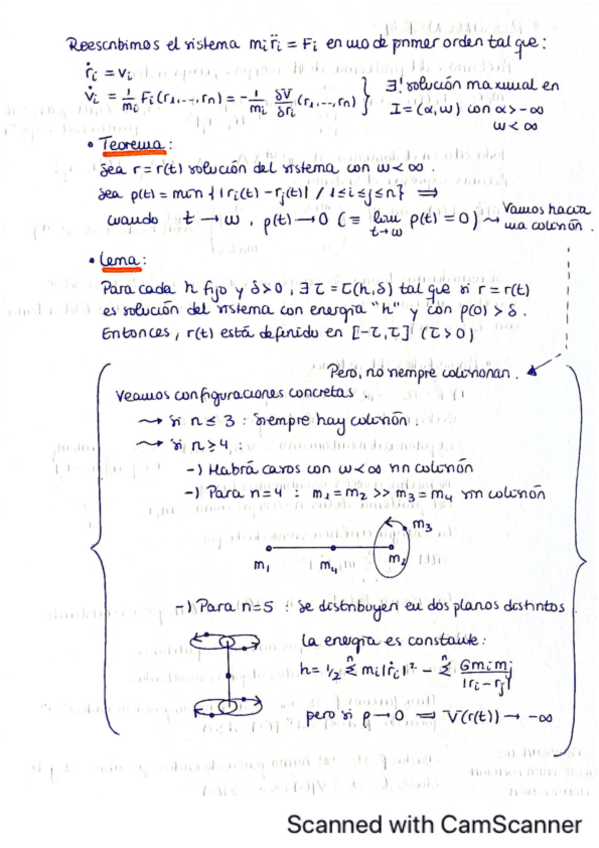 Reescribimos el sistema mᵢ r̈ᵢ = Fᵢ en uno de primer orden tal que:
ṙᵢ = vᵢ
v̇ᵢ = 1/mᵢ Fᵢ(r₁,...,rₙ) = -1/mᵢ δV/δrᵢ (r₁,...,rₙ) } ∃! solución maximal en
I = (α,ω) con α > -∞
ω < ∞
• Teorema:
Sea r = r(t) solución del sistema con ω < ∞.
Sea ρ(t) = min { |rᵢ(t) - rⱼ(t)| / 1 ≤ i ≤ j ≤ n } ⟹
cuando t → ω, ρ(t) → 0 (≡ lim t→ω ρ(t) = 0) ⇝ Vamos hacia
una colisión.
• Lema:
Para cada h fijo y δ > 0, ∃ τ = τ(h,δ) tal que si r = r(t)
es solución del sistema con energía "h" y con ρ(0) > δ.
Entonces, r(t) está definido en [-τ,τ] (τ > 0)
Pero, no siempre colisionan.
Veamos configuraciones concretas.
⇝ si n ≤ 3 : siempre hay colisión.
⇝ si n ≥ 4 :
-) Habrá casos con ω < ∞ sin colisión
-) Para n=4 : m₁ = m₂ >> m₃ = m₄ sin colisión
m₃
m₁ m₄ m₂
-) Para n=5 : Se distribuyen en dos planos distintos
La energía es constante:
h = 1/2 Σⁿ mᵢ|ṙᵢ|² - Σⁿ Gmᵢmⱼ/|rᵢ - rⱼ|
pero si ρ → 0 ⟹ V(r(t)) → -∞
Scanned with CamScanner